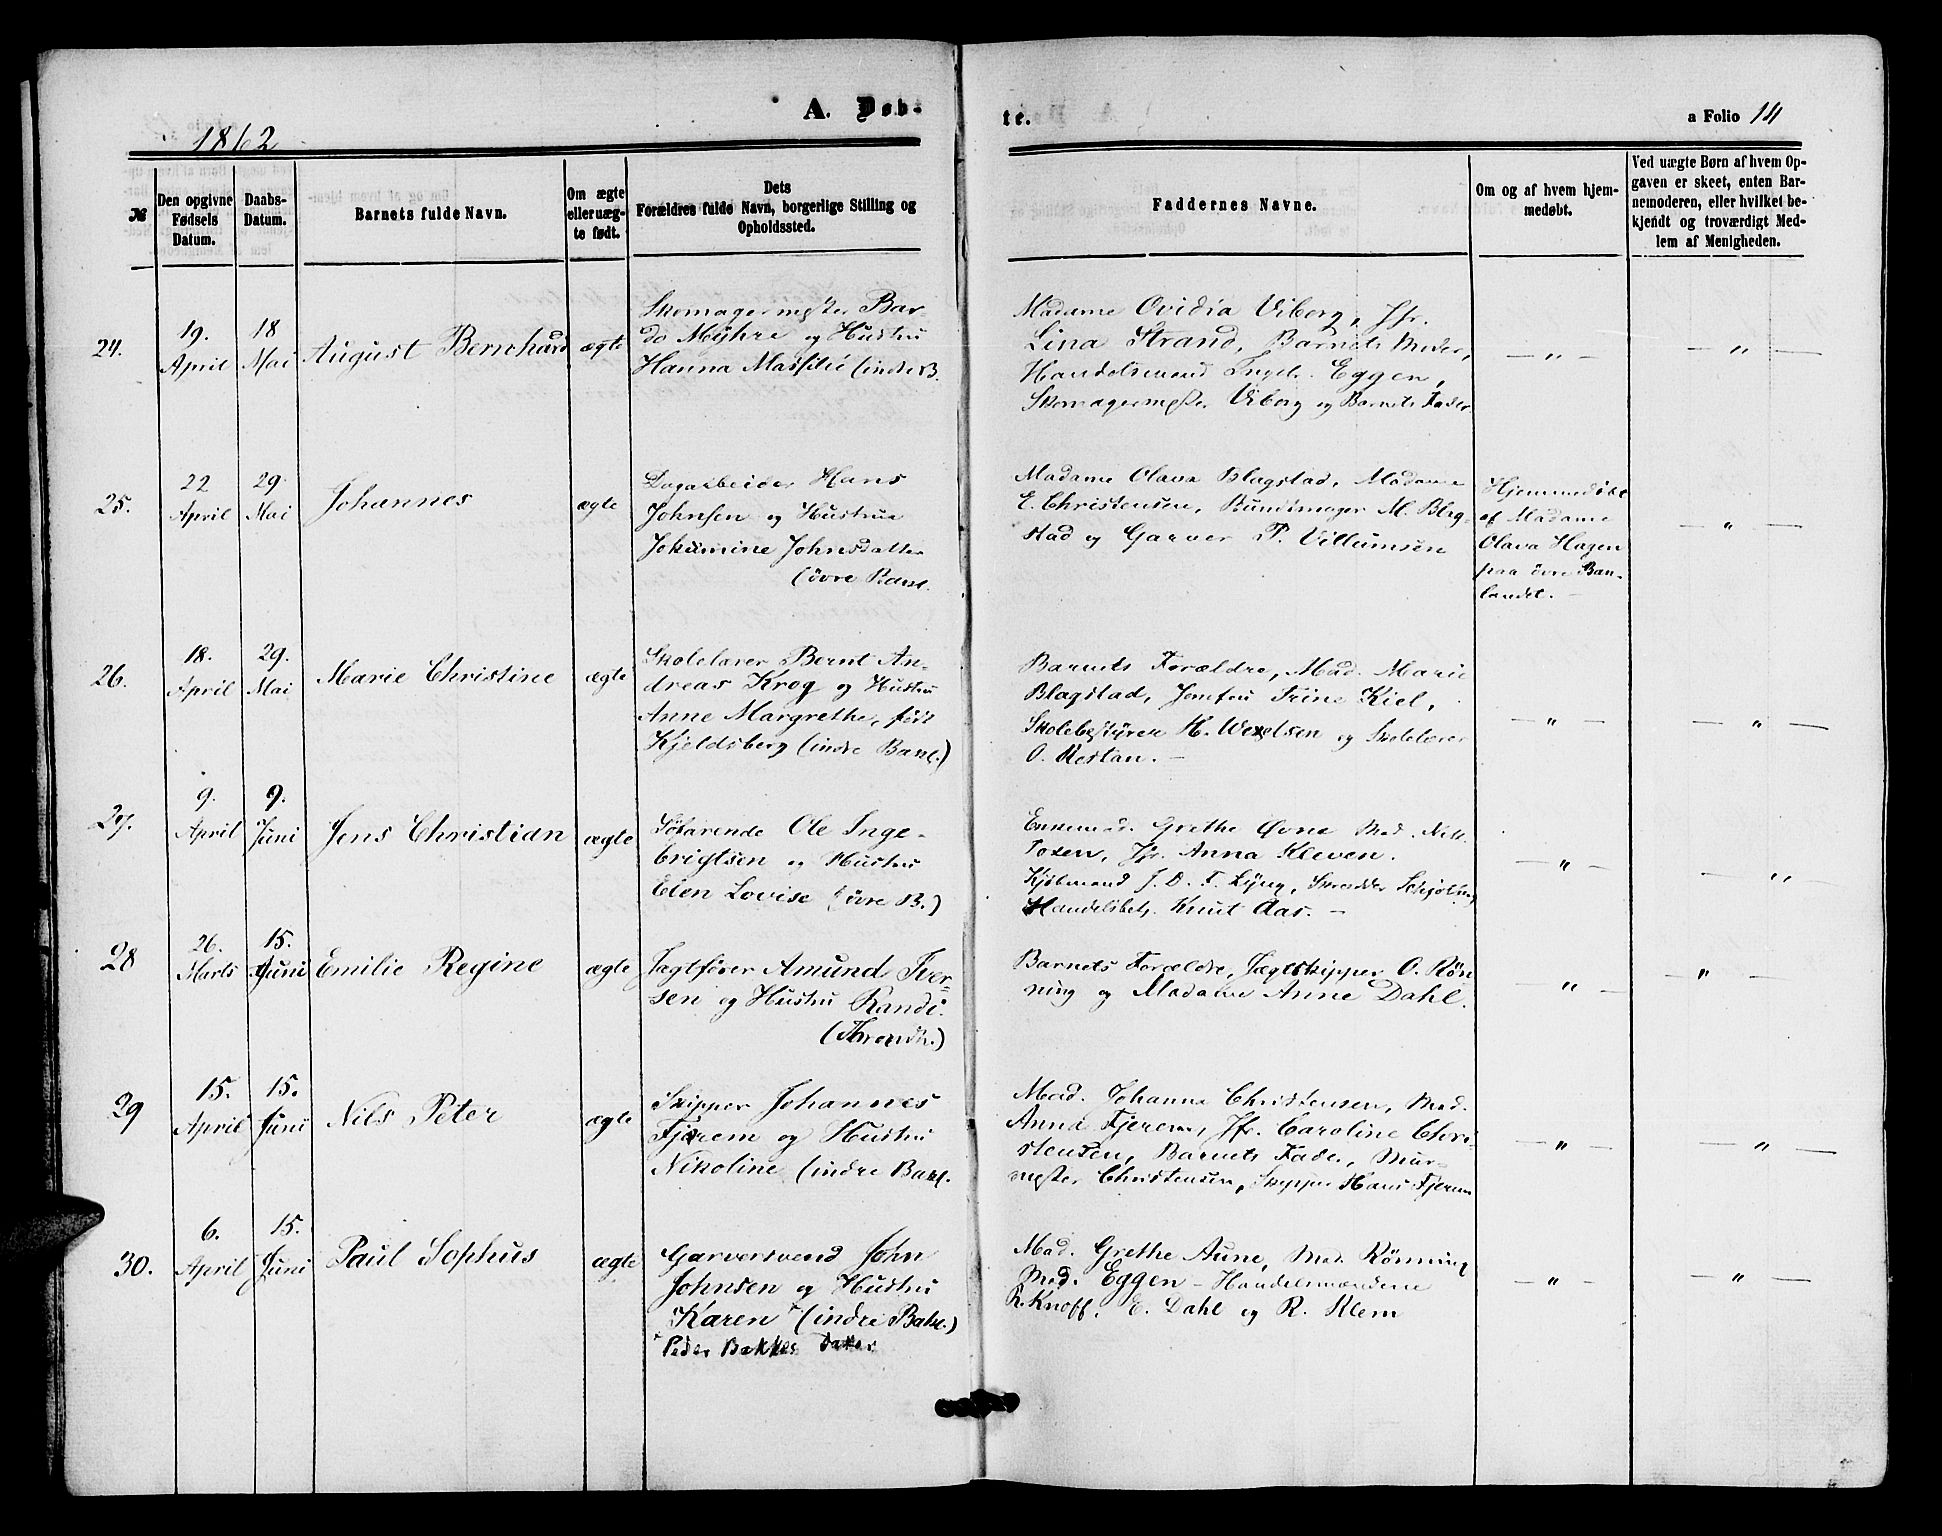 1862
A. Døb-
te.
a Folio 14
№
Den opgivne Fødsels Datum.
Daabs-Datum.
Barnets fulde Navn.
Om ægte eller uæg-te født.
Dets Forældres fulde Navn, borgerlige Stilling og Opholdssted.
Faddernes Navne.
Om og af hvem hjem-medøbt.
Ved uægte Børn af hvem Op-gaven er skeet, enten Bar-nemoderen, eller hvilket be-kjendt og troværdigt Med-lem af Menigheden.
24.
19. April
18 Mai
August Bernhard
ægte
Skomagermester Bar-
do Myhre og Hustru
Hanna (indre B.
Madame Ovidia Viborg, Jfr.
Lina Strand, Barnets Moder,
Handelsmand Eggen,
Skomagermester Viborg og Barnets Fader
— " —
— " —
25.
22 April
29. Mai
Johannes
ægte
Dagarbeider Hans
Johnsen og Hustru
Johnsdatter
(övre Banl.
Madame Olava Blagstad, Madame
E. Christensen, Bundtmager M. Blag-
stad og Garver P. Villumsen
Hjemmedöbt
af Madame
Olava Hagen
paa övre Ban-
landet. —
— " —
26.
18. April
29. Mai
Marie Christine
ægte
Skolelærer Bernt An-
dreas Krog og Hustru
Anne Margrethe, født
Kjeldsberg (indre Banl.)
Barnets Forældre, Mad. Marie
Blagstad, Jomfru Trine Kiel,
Skolebestyrer H. Wexelsen og Skolelærer
O. Restan. —
— " —
— " —
27.
9. April
9. Juni
Jens Christian
ægte
Söfarende Ole Inge-
brigtsen og Hustru
Elen Lovise (övre B.)
Enkemad. Grethe Øvne Mad.
Jfr. Anna Kleven.
Kjöbmand J. D. F. Lyng, Skrædder
Handelsbetj. Knut Aas. —
— " —
— " —
28
26. Marts
15. Juni
Emilie Regine
ægte
Jagtfører Amund Iver-
sen og Hustru Randi.
(Throndh.)
Barnets Forældre, Jægtskipper O. Rön-
ning og Madame Anne Dahl.
— " —
— " —
29
15. April
15. Juni
Nils Peter
ægte
Skipper Johannes
Fjerem og Hustru
Nikoline (indre Banl.
Mad. Johanna Christensen, Mad.
Anna Fjerem, Jfr. Caroline Chri-
stensen, Barnets Fader, Mur-
mester Christensen, Skipper Hans Fjerem
— " —
— " —
30.
6. April
15. Juni
Paul Sophus
ægte
Garversvend John
Johnsen og Hustru
Karen + (indre Banl.)
+ Peder Bakkes Datter
Mad. Grethe Aune, Mad. Rönning
Mad. Eggen — Handelsmændene
R. Knoff. E. Dahl og R. Klem
— " —
— " —